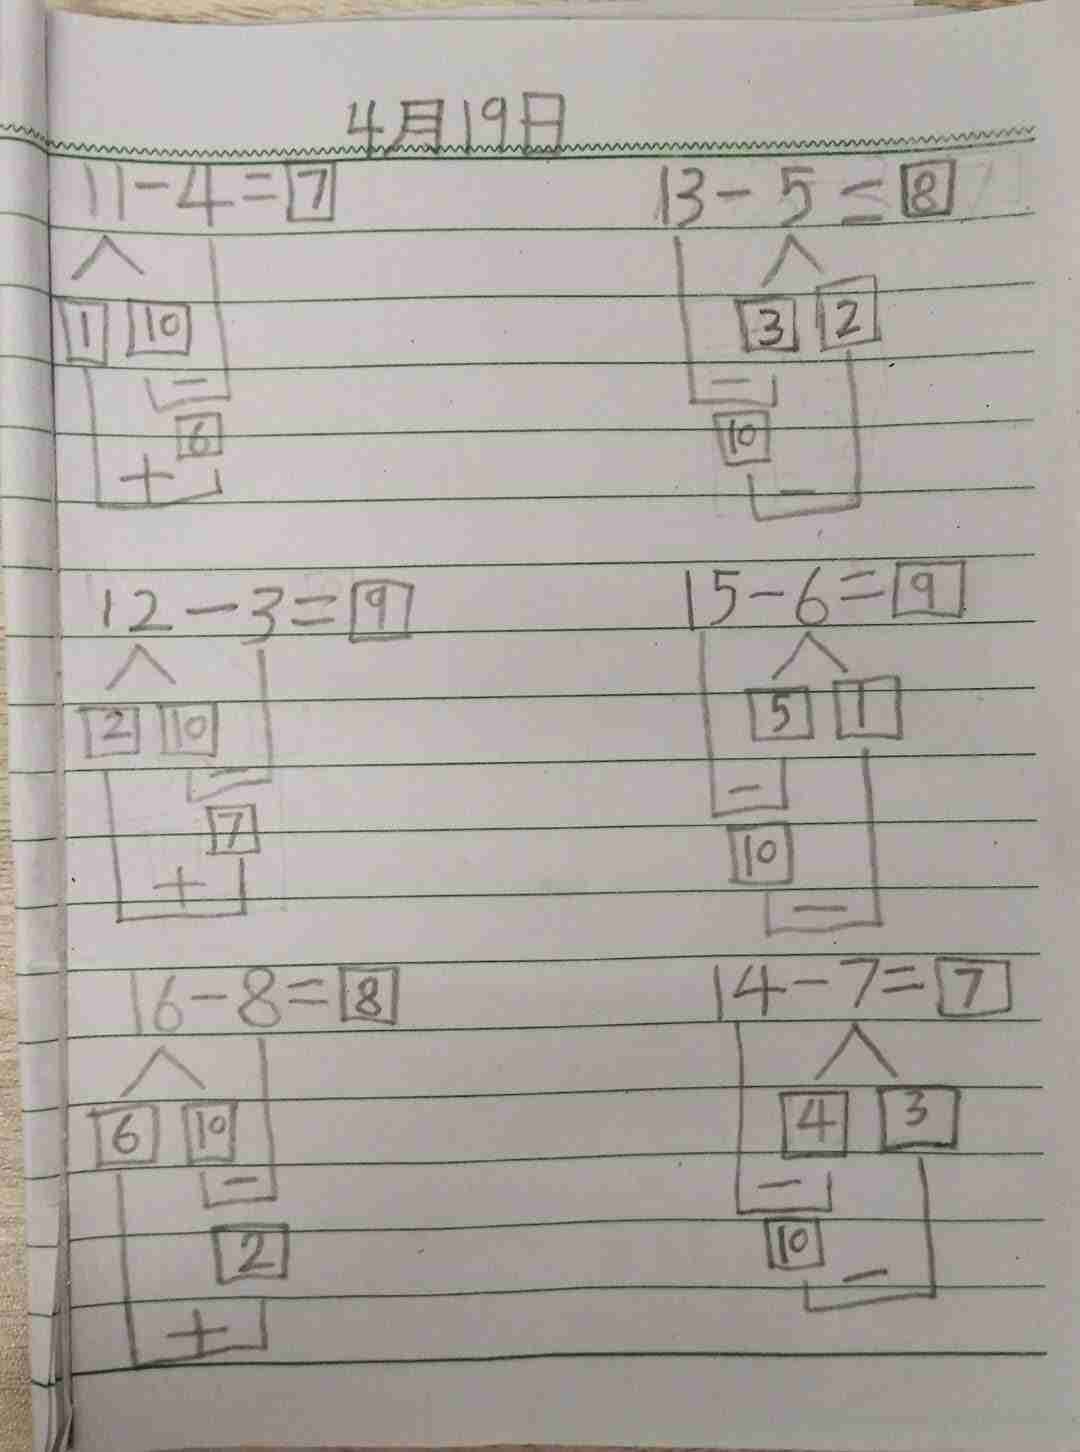 4月19日
11-4=7 13-5=8
1 10 3 2
- -
6 10
+ -
12-3=9 15-6=9
2 10 5 1
- -
7 10
+ -
16-8=8 14-7=7
6 10 4 3
- -
2 10
+ -